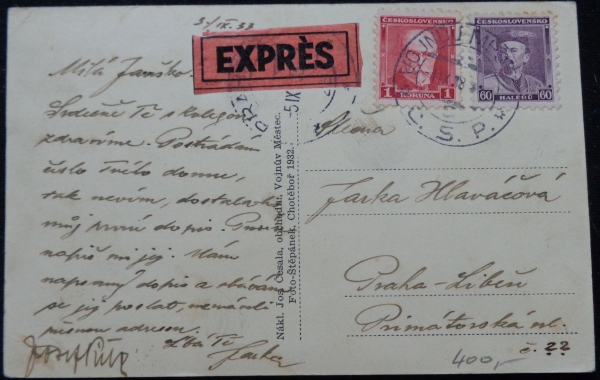 5/IX. 33
EXPRÈS
Milá Jarko.
Srdečně Tě s kolegou
zdravíme. Postrádám
číslo Tvého domu,
tak nevím, dostala-li
můj první dopis.
napiš mi jej. Mám
napsaný dopis a
se jej poslat, nemám-li
adresu.
Líbá Tě
Jarka
Nákl. Jos. Česala, obchodu, Vojnův Městec.
Foto-Štěpánek, Chotěboř 1932.
ČESKOSLOVENSKO
1 KORUNA 1
ČESKOSLOVENSKO
60 HALÉŘŮ 60
Slečna
Jarka Hlaváčová
Praha-Libeň
Primátorská ul.
č. 22
400,-